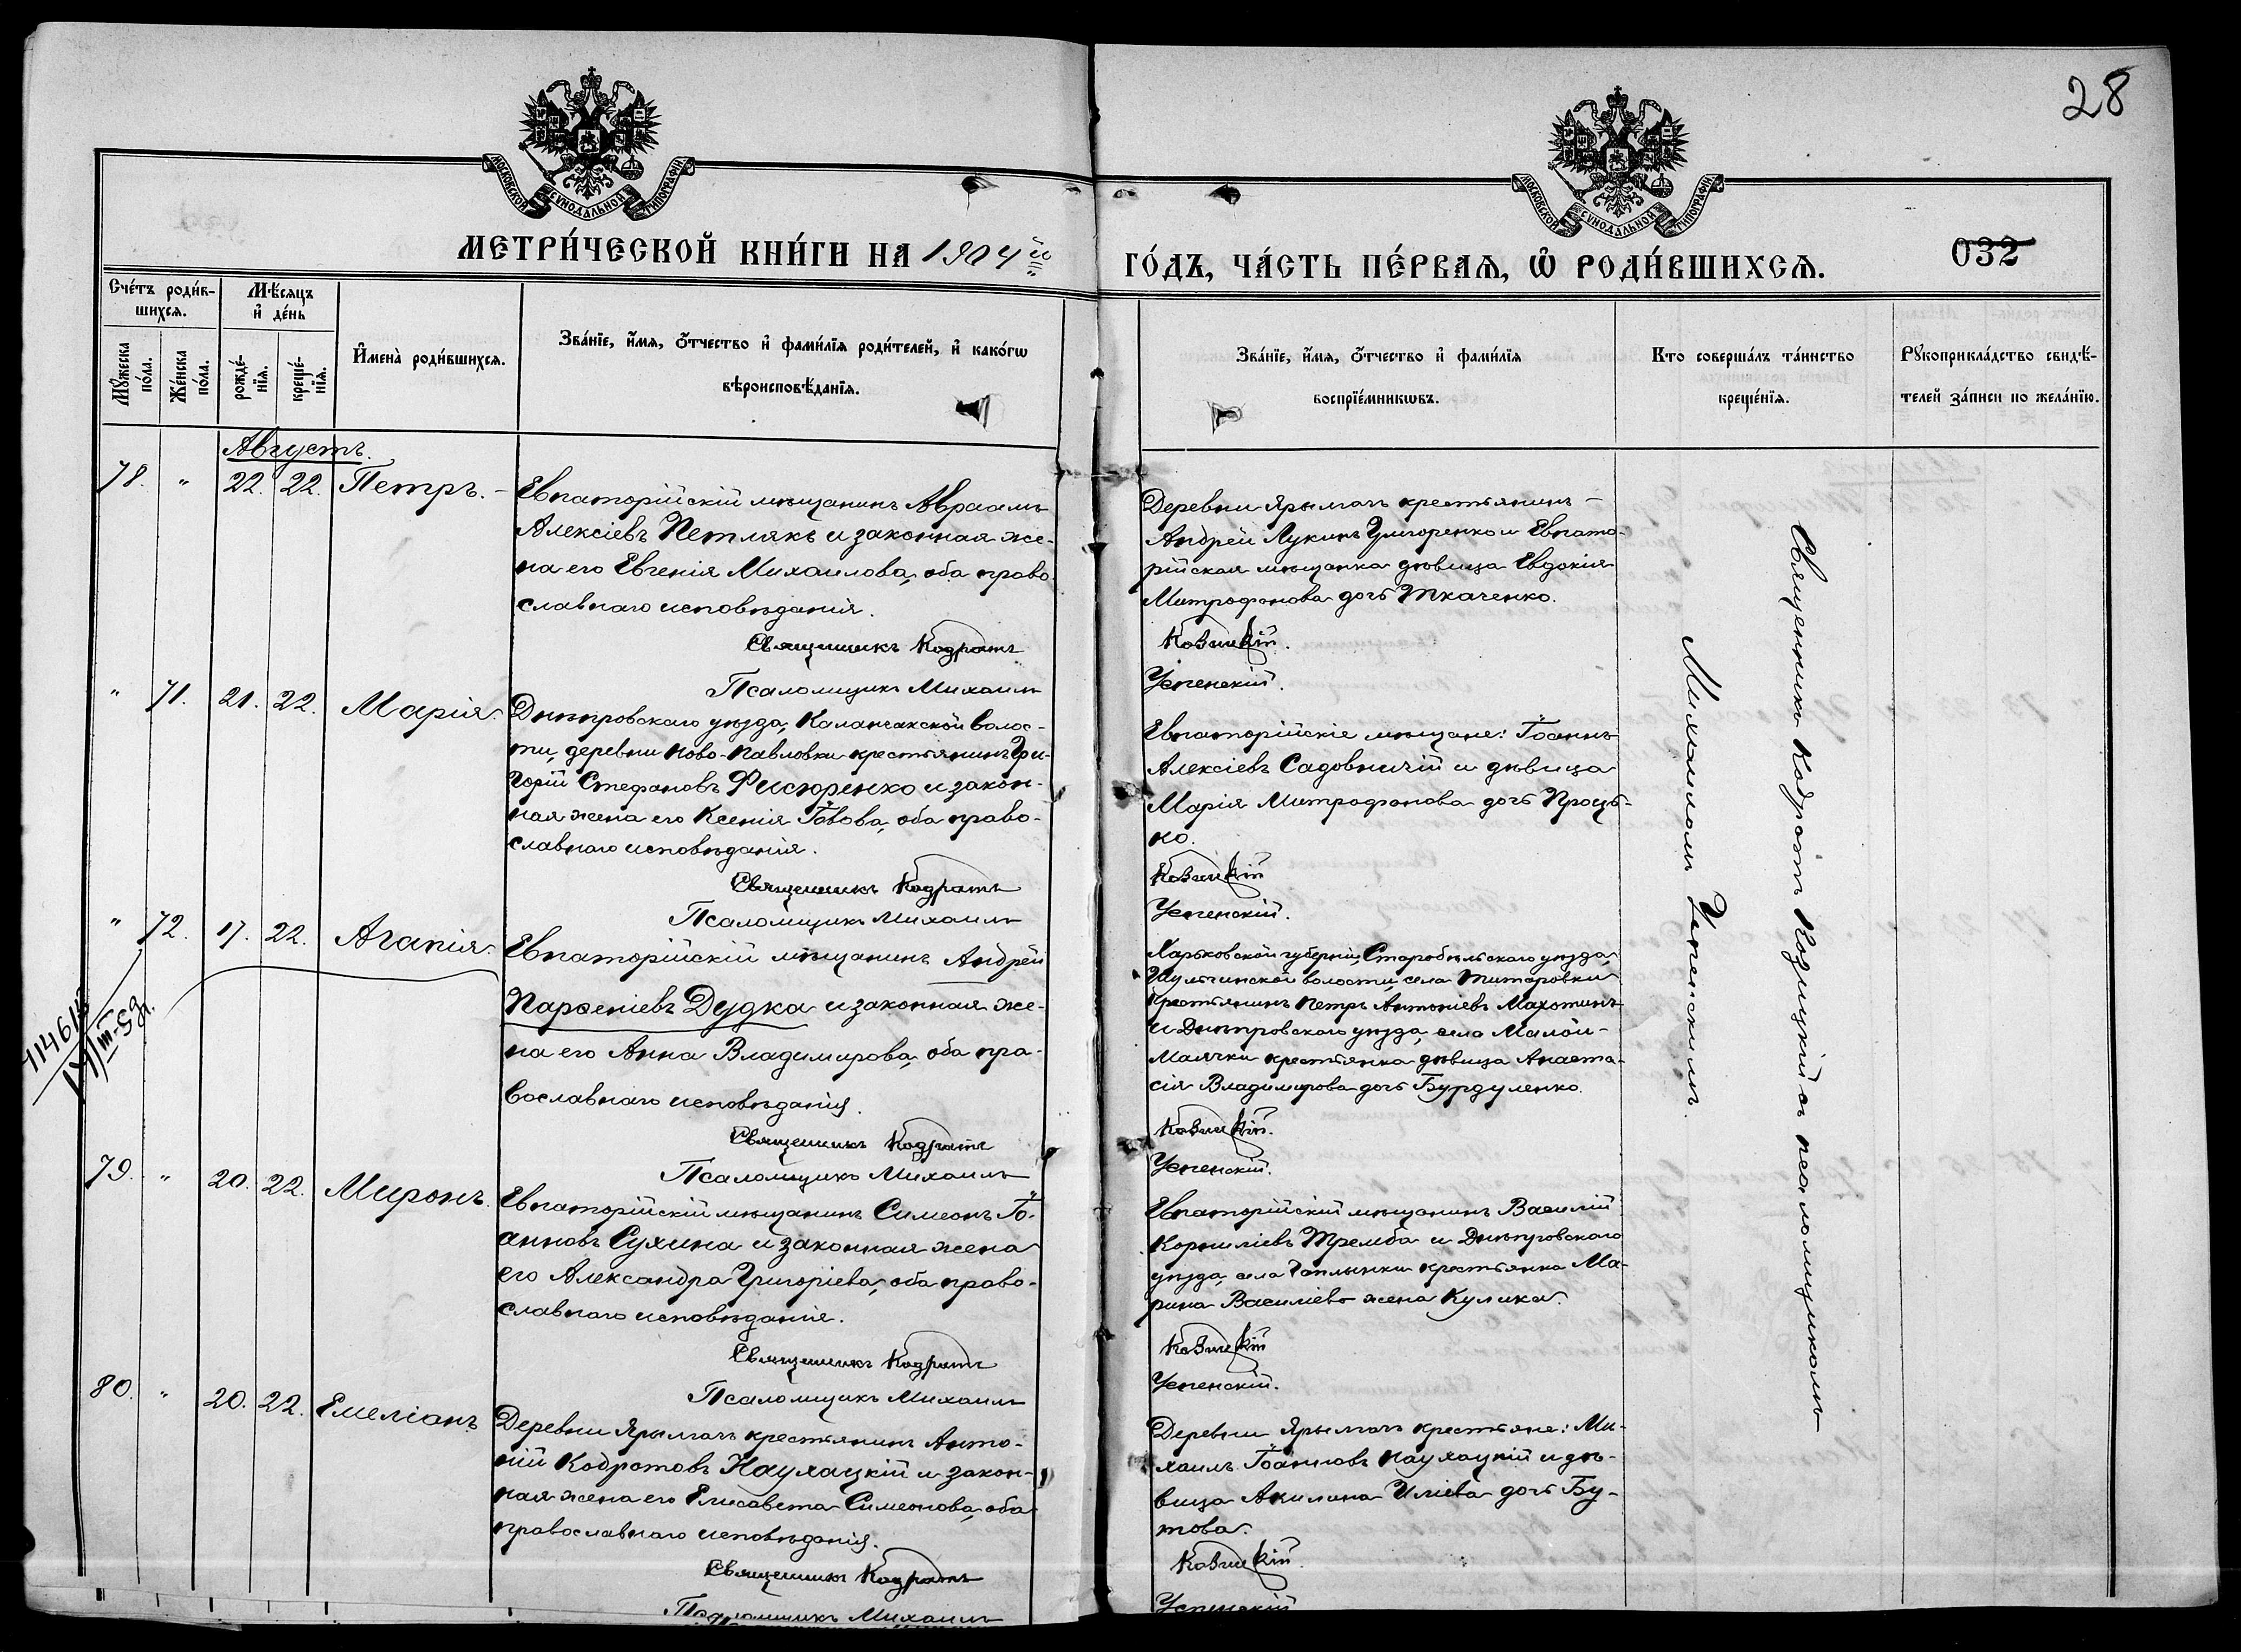 28
МОСКОВСКОЙ СѴНОДАЛЬНОЙ ТИПОГРАФІИ
МОСКОВСКОЙ СѴНОДАЛЬНОЙ ТИПОГРАФІИ
МЕТРИ́ЧЕСКОЙ КНИ́ГИ НА 1904й
ГО́ДЪ, ЧА́СТЬ ПЕ́РВАѦ, Ѽ РОДИ́ВШИХСѦ.
032
Сче́тъ роди́в-
шихсѧ.
Мѣ́сѧцъ
и҆ де́нь
Мꙋ́жеска
по́ла.
Же́нска
по́ла.
рожде́-
нїѧ.
креще́-
нїѧ.
И҆мена̀ роди́вшихсѧ.
Зва́нїе, и҆́мѧ, ѻ҆́тчество и҆ фами́лїѧ роди́телей, и҆ како́гѡ
вѣроисповѣ́данїѧ.
Зва́нїе, и҆́мѧ, ѻ҆́тчество и҆ фами́лїѧ
воспрїе́мникѡвъ.
Кто соверша́лъ та́инство
креще́нїѧ.
Рꙋкоприкла́дство свидѣ́-
телей за́писи по жела́нїю.
Августъ.
78. " 22. 22. Петръ. –
Евпаторійскій мѣщанинъ Авраамъ
Алексіевъ Петлякъ и законная же-
на его Евгенія Михаилова, оба право-
славнаго исповѣданія.
Священникъ Кодратъ
Псаломщикъ Михаилъ
Деревни Ярылгачъ крестьянинъ –
Андрей Лукинъ Григоренко и Евпато-
рійская мѣщанка дѣвица Евдокія
Митрофанова дочь Ткаченко.
Козицкій.
Успенскій.
" 71. 21. 22. Марія.
Днѣпровскаго уѣзда, Каланчакской волос-
ти, деревни Ново-Павловки крестьянинъ Гри-
горій Стефановъ Фисюренко и закон-
ная жена его Ксенія Іовова, оба право-
славнаго исповѣданія.
Священникъ Кодратъ
Псаломщикъ Михаилъ
Евпаторійскіе мѣщане: Іоаннъ
Алексіевъ Садовничій и дѣвица
Марія Митрофанова дочь Проць-
ко.
Козицкій
Успенскій.
" 72. 17. 22. Агапія.
Евпаторійскій мѣщанинъ Андрей
Парѳеніевъ Дудка и законная же-
на его Анна Владимирова, оба пра-
вославнаго исповѣданія.
Священникъ Кодратъ
Псаломщикъ Михаилъ
Харьковской губерніи, Старобѣльскаго уѣзда,
Шульгинской волости, села Титаровки
крестьянинъ Петръ Антоніевъ Махотинъ
и Днѣпровскаго уѣзда, села Малой-
Маячки крестьянка дѣвица Анаста-
сія Владимирова дочь Бурдуленко.
Козицкій.
Успенскій.
79. " 20. 22. Миронъ.
Евпаторійскій мѣщанинъ Симеонъ Іо-
анновъ Сухина и законная жена
его Александра Григоріева, оба право-
славнаго исповѣданія.
Священникъ Кодратъ
Псаломщикъ Михаилъ
Евпаторійскій мѣщанинъ Василій
Корниліевъ Тремба и Днѣпровскаго
уѣзда, села Чаплынки крестьянка Ма-
рина Василіева жена Кулика.
Козицкій
Успенскій.
80. " 20. 22. Емеліанъ
Деревни Ярылгачъ крестьянинъ Анто-
ній Кодратовъ Наухацкій и закон-
ная жена его Елисавета Симеонова, оба
православнаго исповѣданія.
Священникъ Кодратъ
Псаломщикъ Михаилъ
Деревни Ярылгачъ крестьяне: Ми-
хаилъ Іоанновъ Наухацкій и дѣ-
вица Акилина Иліева дочь Бу-
това.
Козицкій.
Успенскій
Священникъ Кодратъ Козицкій съ псаломщикомъ
Михаиломъ Успенскимъ.